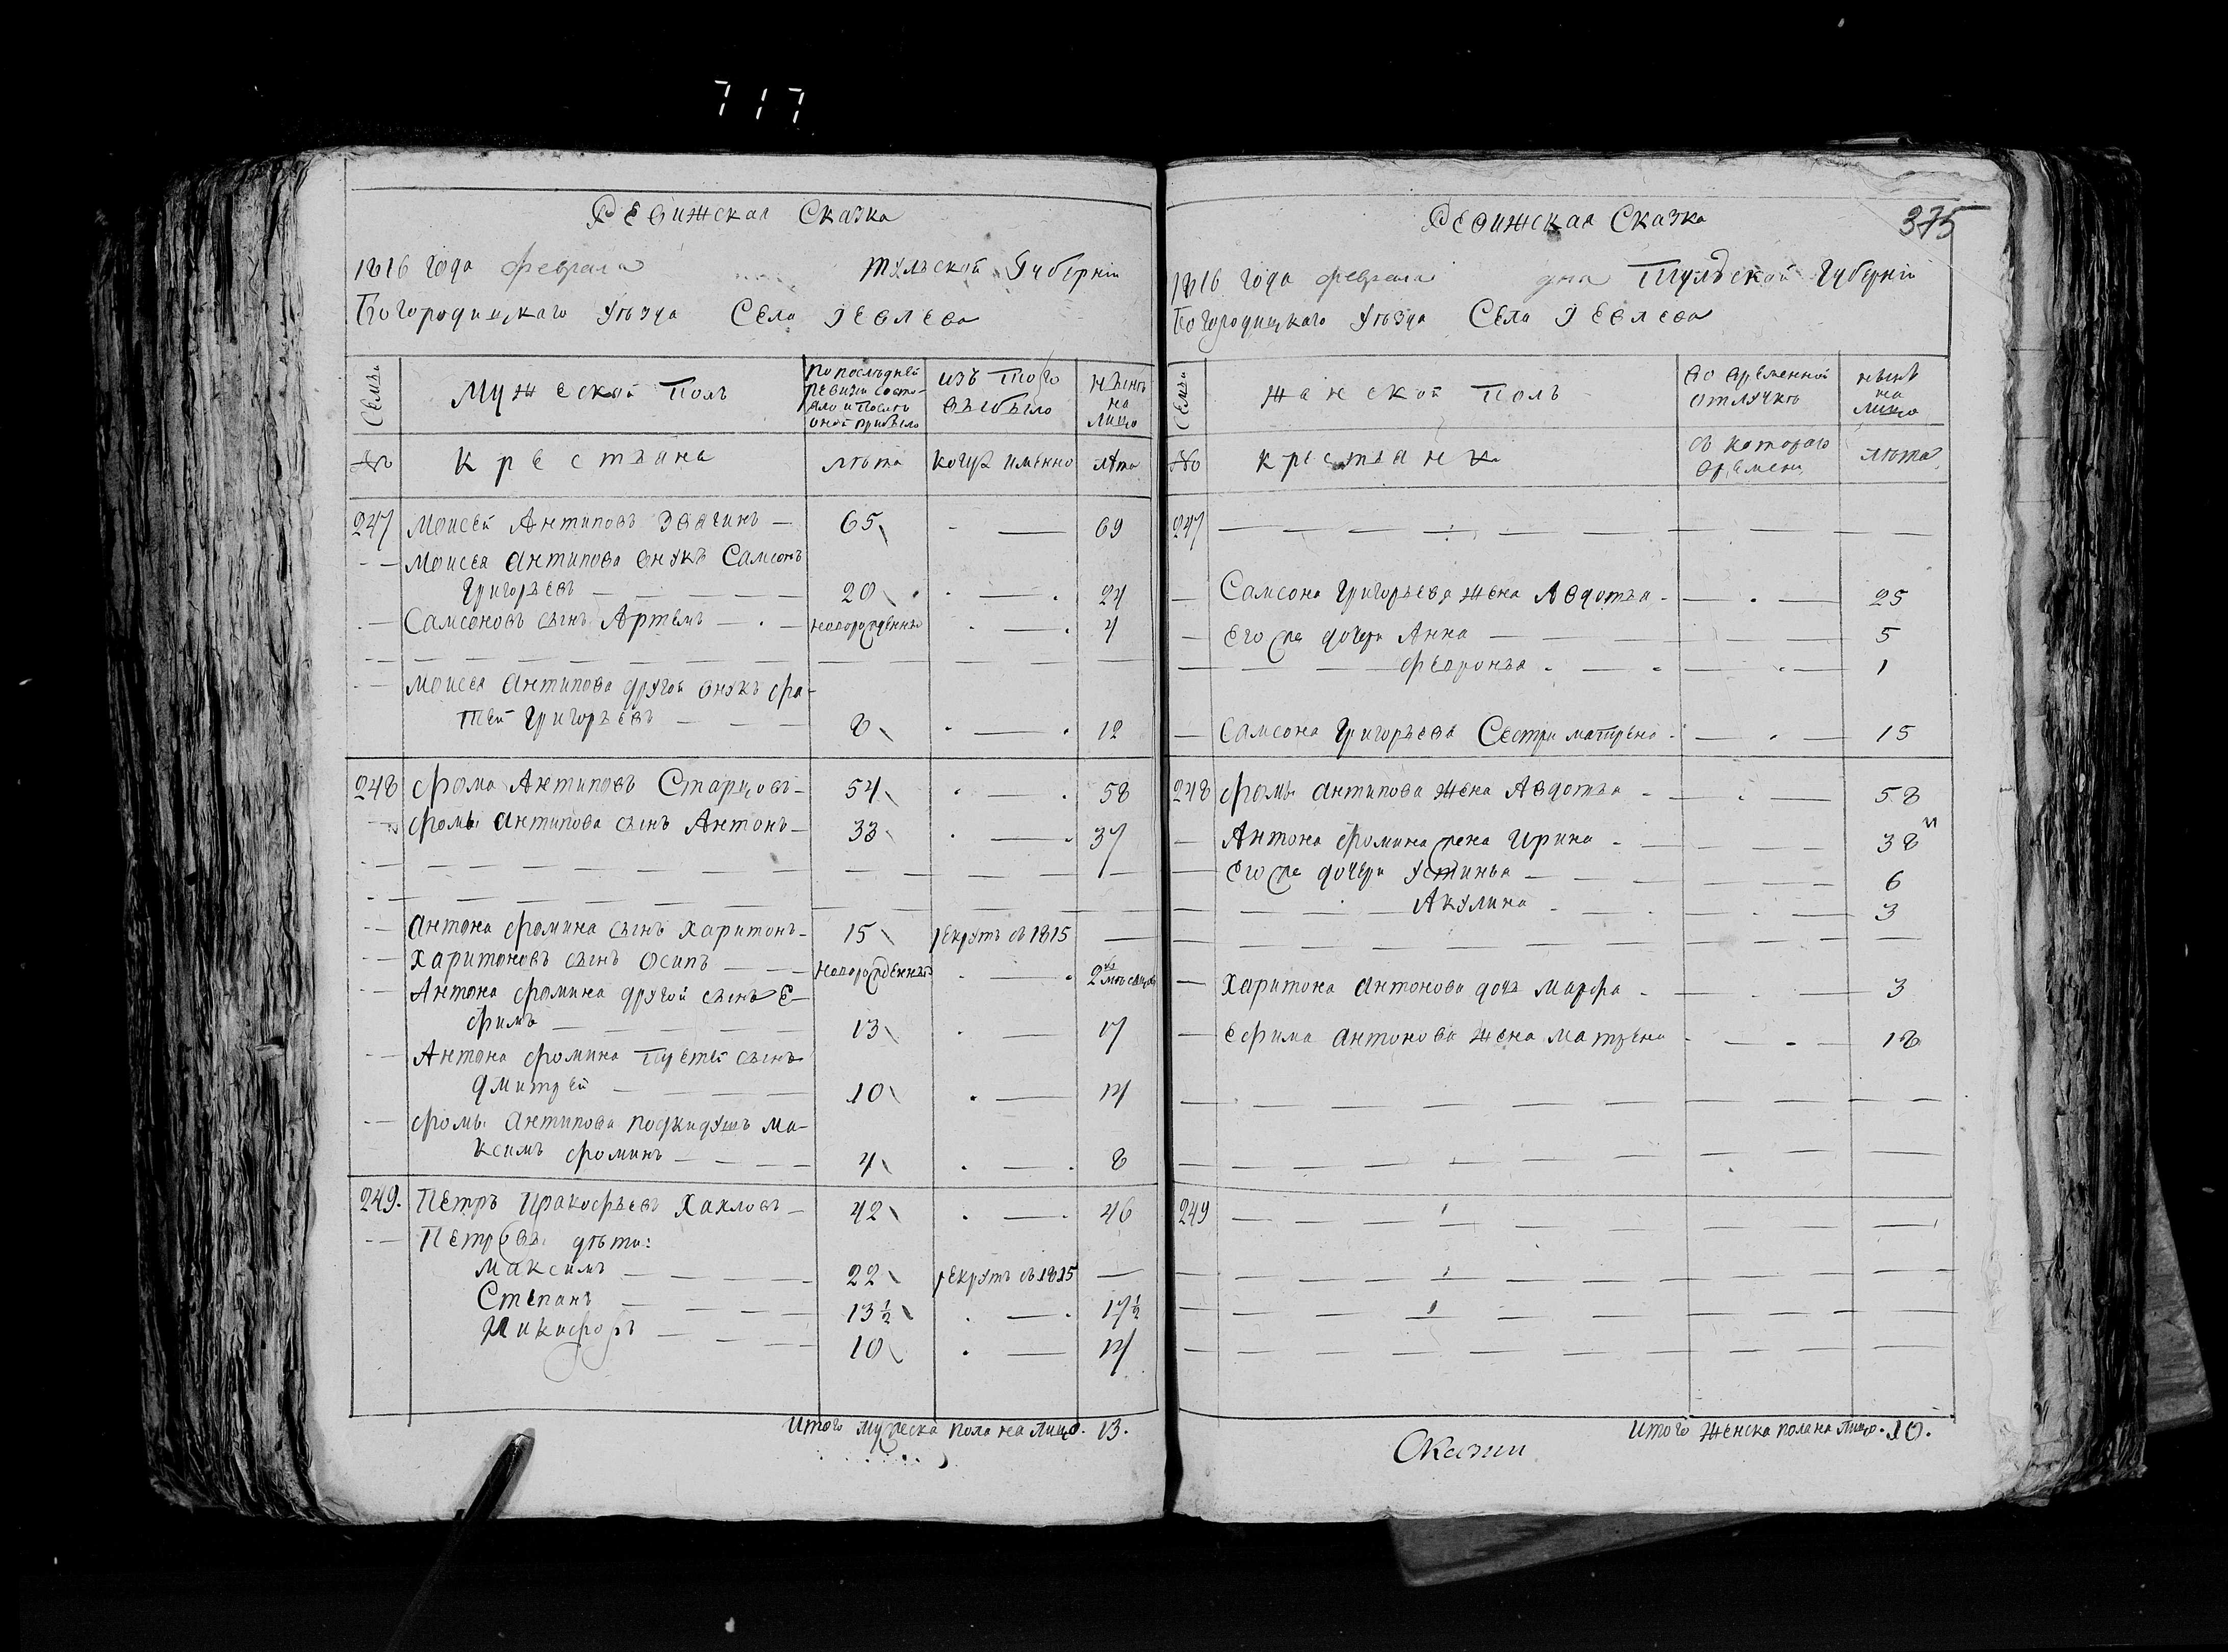 717
Ревижская Сказка
1816 года февраля Тульской Губерніи
Богородицкаго уѣзда Села Іевлева
Семьи
Мужеской полъ
по послѣдней ревизіи состояло и после оной прибыло
изъ того выбыло
нынѣ на лицо
№
крестьяна
лѣта
когда именно
лѣта
247 Моисей Антиповъ Звягинъ — 65 — 69
Моисея Антипова внукъ Самсонъ
Григорьевъ — 20 — 24
Самсоновъ сынъ Артемъ — новорожденны — 4
Моисея Антипова другой внукъ Фа-
тей Григорьевъ — 8 — 12
248 Фома Антиповъ Старцовъ — 54 — 58
Фомы Антипова сынъ Антонъ — 33 — 37
Антона Фомина сынъ Харитонъ — 15 рекрутъ въ 1815 —
Харитоновъ сынъ Осипъ — новорожденный — 2
Антона Фомина другой сынъ Е-
фимъ — 13 — 17
Антона Фомина третей сынъ
Дмитрей — 10 — 14
Фомы Антипова подкидушъ Ма-
ксимъ Фоминъ — 4 — 8
249. Петръ Пракофьевъ Хахловъ — 42 — 46
Петровы дѣти:
Максимъ — 22 рекрутъ въ 1815 —
Степанъ — 13½ — 17½
Никифоръ — 10 — 14
Итого мужеска пола на лицо. 13.
375
Ревижская Сказка
1816 года февраля дня Тульской Губерніи
Богородицкаго уѣзда Села Іевлева
Семьи
Женской полъ
во временной отлучкѣ
нынѣ на лицо
№
крестьянки
съ котораго времени
лѣта
247
Самсона Григорьева жена Авдотья — 25
Его же дочери Анна — 5
Февронья — 1
Самсона Григорьева Сестра матрена — 15
248 Фомы Антипова жена Авдотья — 58
Антона Фомина жена Ирина — 38
Его же дочери Устинья — 6
Акулина — 3
Харитона Антонова дочь Марфа — 3
Ефима Антонова жена Матрена — 18
249
Итого женска пола на лицо. 10.